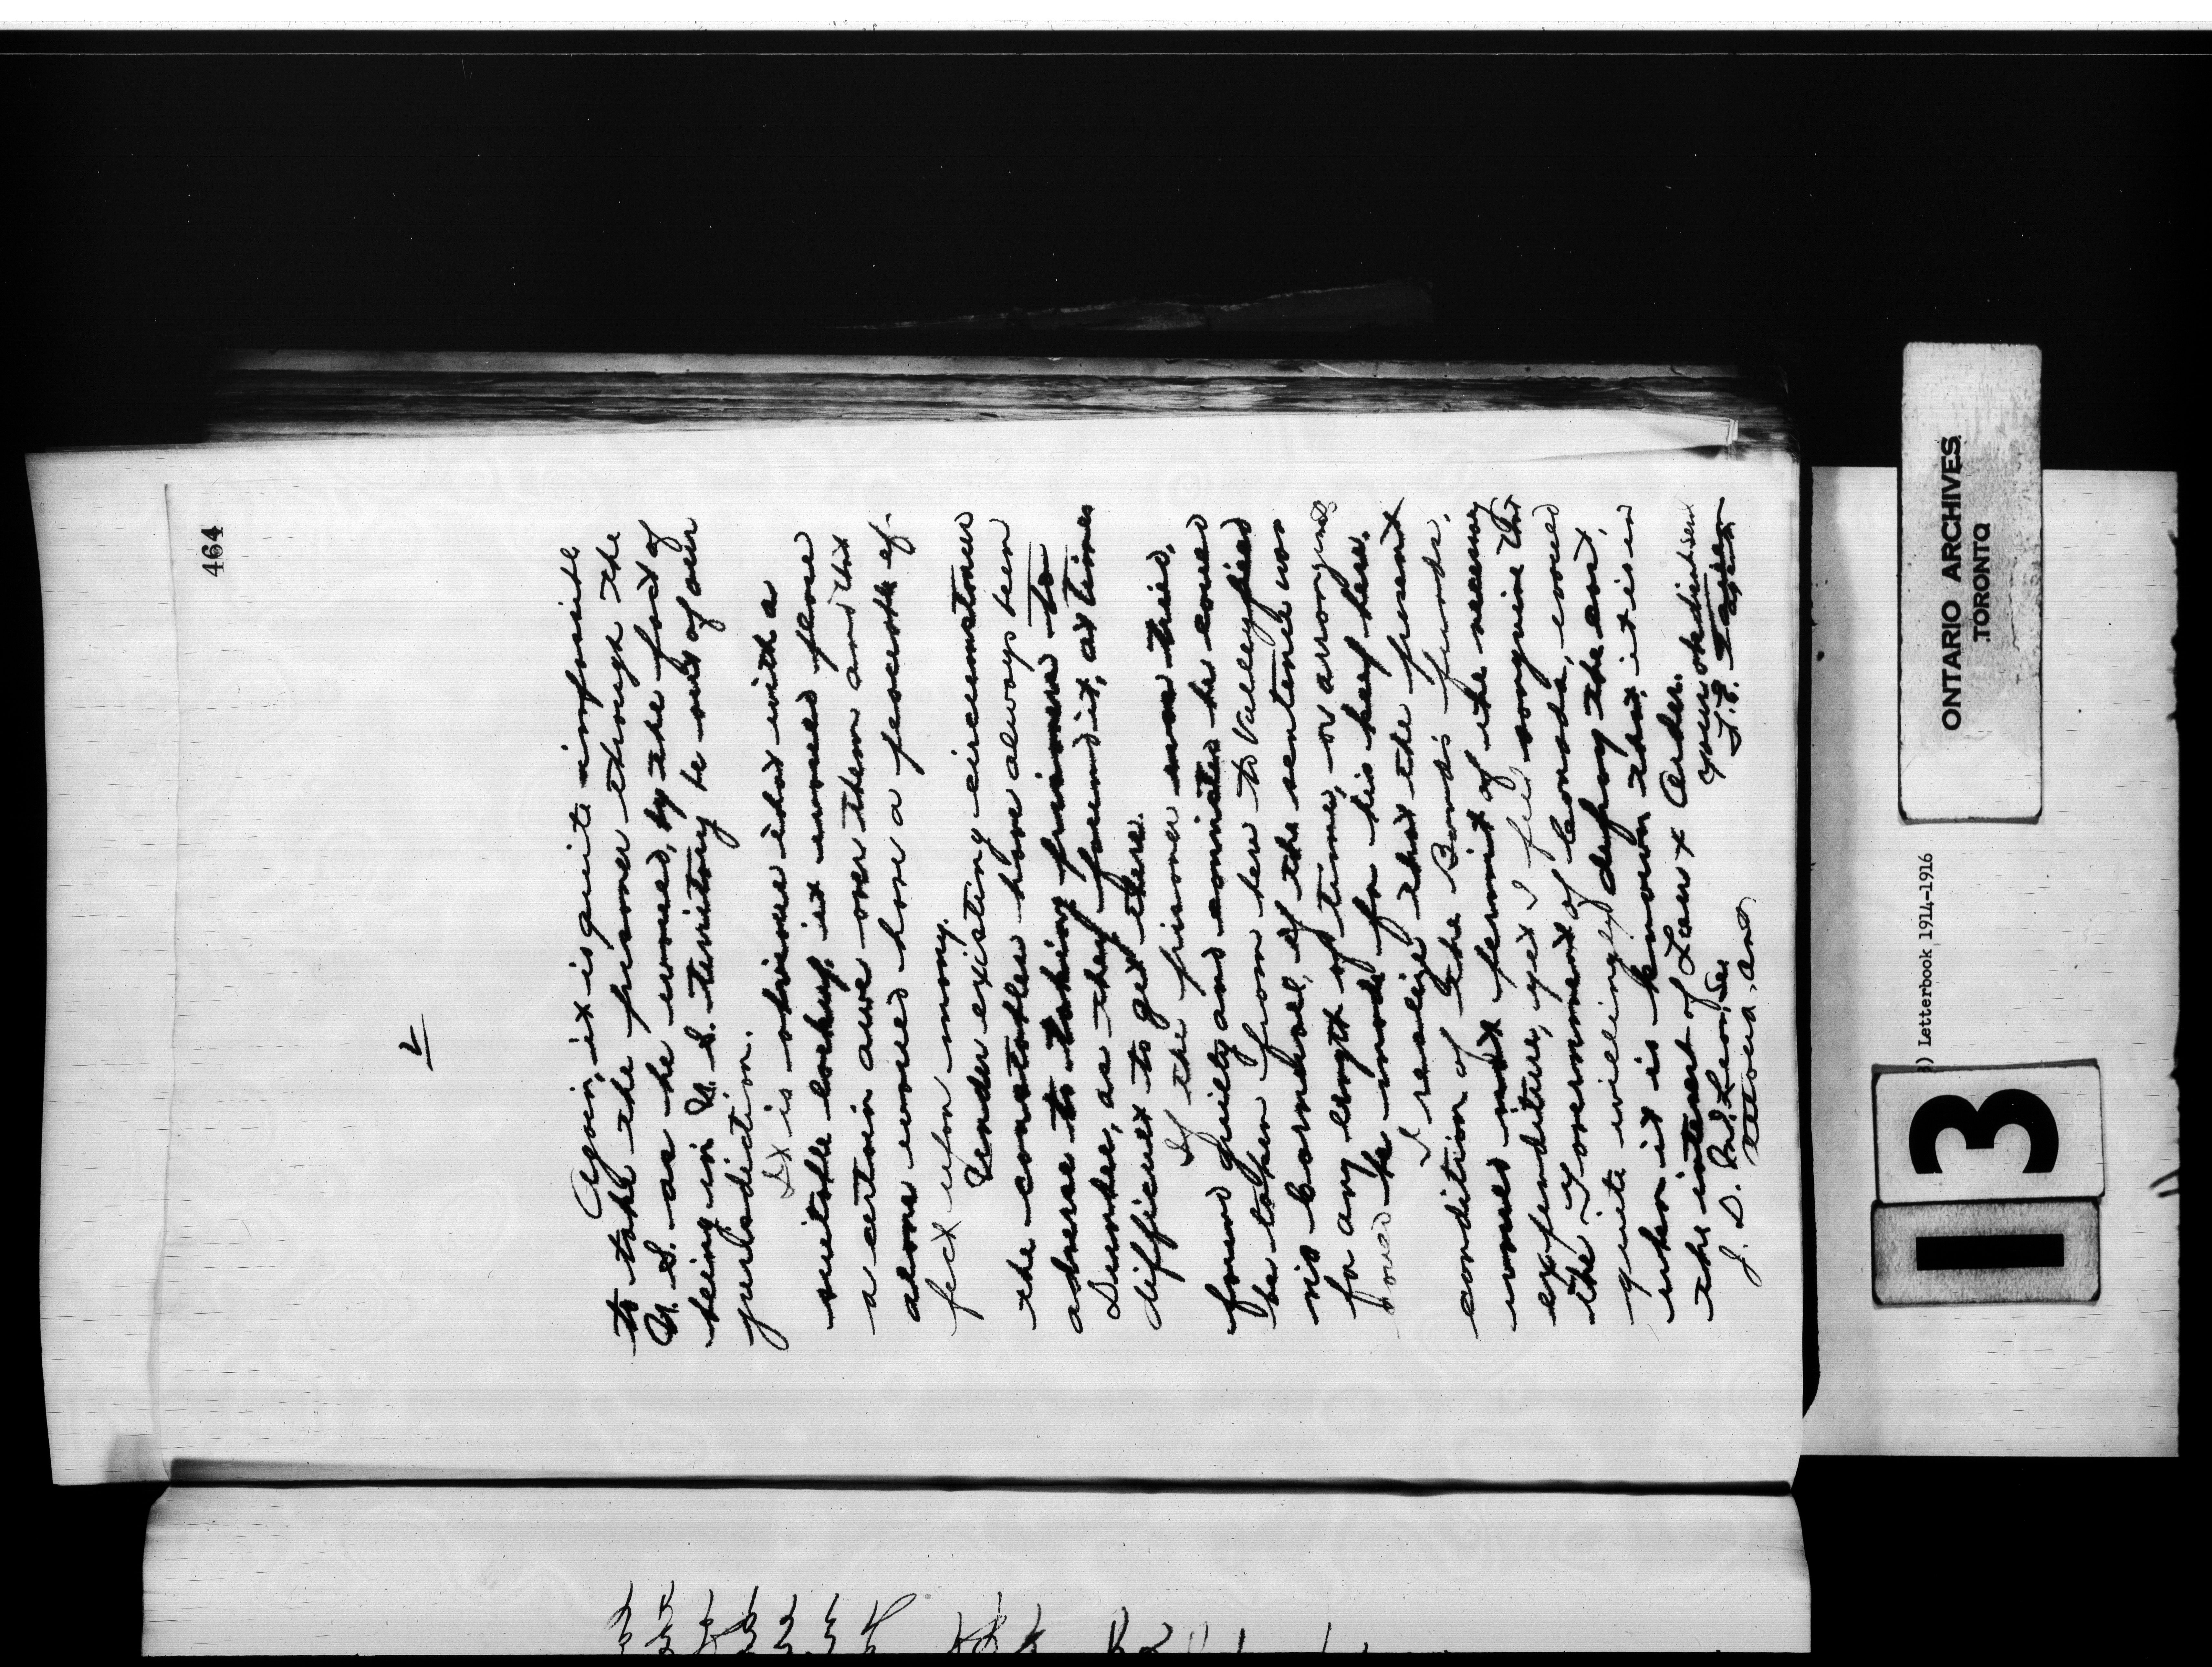 464
2
Again, it is quite impossible
to take the prisoner through the
U. S. as he would, by the fact of
being in U. S. territory be out of our
jurisdiction.
It is obvious that with a
suitable lockup, it would place
a certain awe over them and this
alone would have a favorable ef-
fect upon many.
Under existing circumstances
the constables have always been
adverse to taking prisoners to
Dundee, as they found it, at times
difficult to get there.
If the prisoner was tried,
found guilty and committed he could
be taken from here to Valleyfield
via Cornwall, if the sentence was
for any length of time, or arrangmts
could be made for his keep here.
I realize that the present
condition of the Band's funds,
would not permit of the necessary
expenditure, yet I feel sanguine that
the Government of Canada, would
quite willingly defray the cost,
when it is known that it is in
the interest of Law & Order.
Your obedient Serv
Agent
J. D. McLean Esq
Ottawa, Ont
ONTARIO ARCHIVES
TORONTO
) Letterbook 1914-1916
13